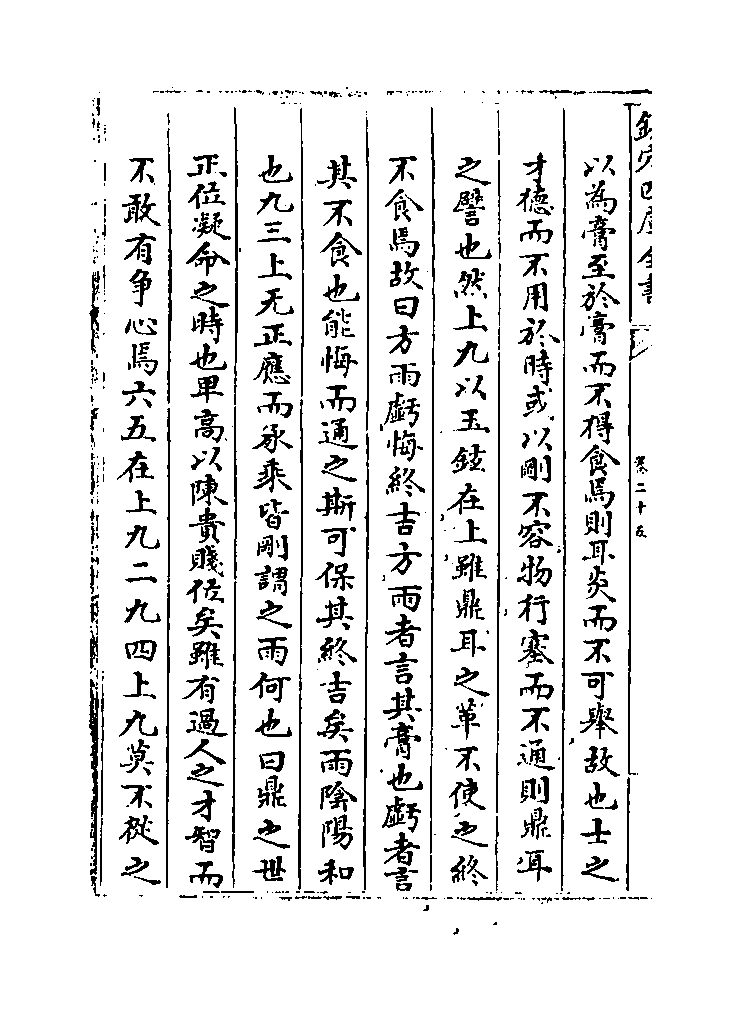 欽定四庫全書
卷二十五
以為膏至於膏而不得食焉則耳炎而不可舉故也士之
才德而不用於時或以剛不容物行塞而不通則鼎耳
之譬也然上九以玉鉉在上雖鼎耳之革不使之終
不食焉故曰方雨虧悔終吉方雨者言其膏也虧者言
其不食也能悔而通之斯可保其終吉矣雨隂陽和
也九三上无正應而承乗皆剛謂之雨何也曰鼎之世
正位凝命之時也卑高以陳貴賤位矣雖有過人之才智而
不敢有争心焉六五在上九二九四上九莫不從之